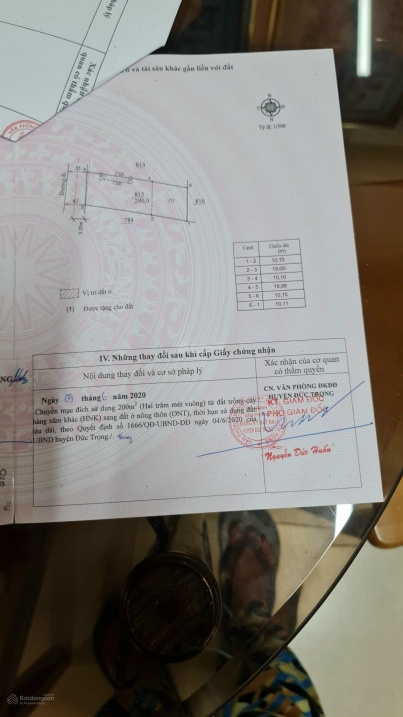 ở và tài sản khác gắn liền với đất
Tỷ lệ: 1/500
815
813
290,9
(1)
816
784
Đường đi
Cạnh
Chiều dài
(m)
1 - 2
10,10
2 - 3
19,00
3 - 4
10,10
4 - 5
18,98
5 - 6
10,10
6 - 1
10,11
Vị trí đất ở
(1) Được tặng cho đất
IV. Những thay đổi sau khi cấp Giấy chứng nhận
Nội dung thay đổi và cơ sở pháp lý
Xác nhận của cơ quan
có thẩm quyền
Ngày 09 tháng 6 năm 2020
Chuyển mục đích sử dụng 200m² (Hai trăm mét vuông) từ đất trồng cây
hàng năm khác (HNK) sang đất ở nông thôn (ONT), thời hạn sử dụng đất:
lâu dài, theo Quyết định số 1666/QĐ-UBND-ĐD ngày 04/6/2020 của
UBND huyện Đức Trọng./.
CN. VĂN PHÒNG ĐKĐĐ
HUYỆN ĐỨC TRỌNG
KT. GIÁM ĐỐC
PHÓ GIÁM ĐỐC
Nguyễn Đức Huấn
Batdongsan